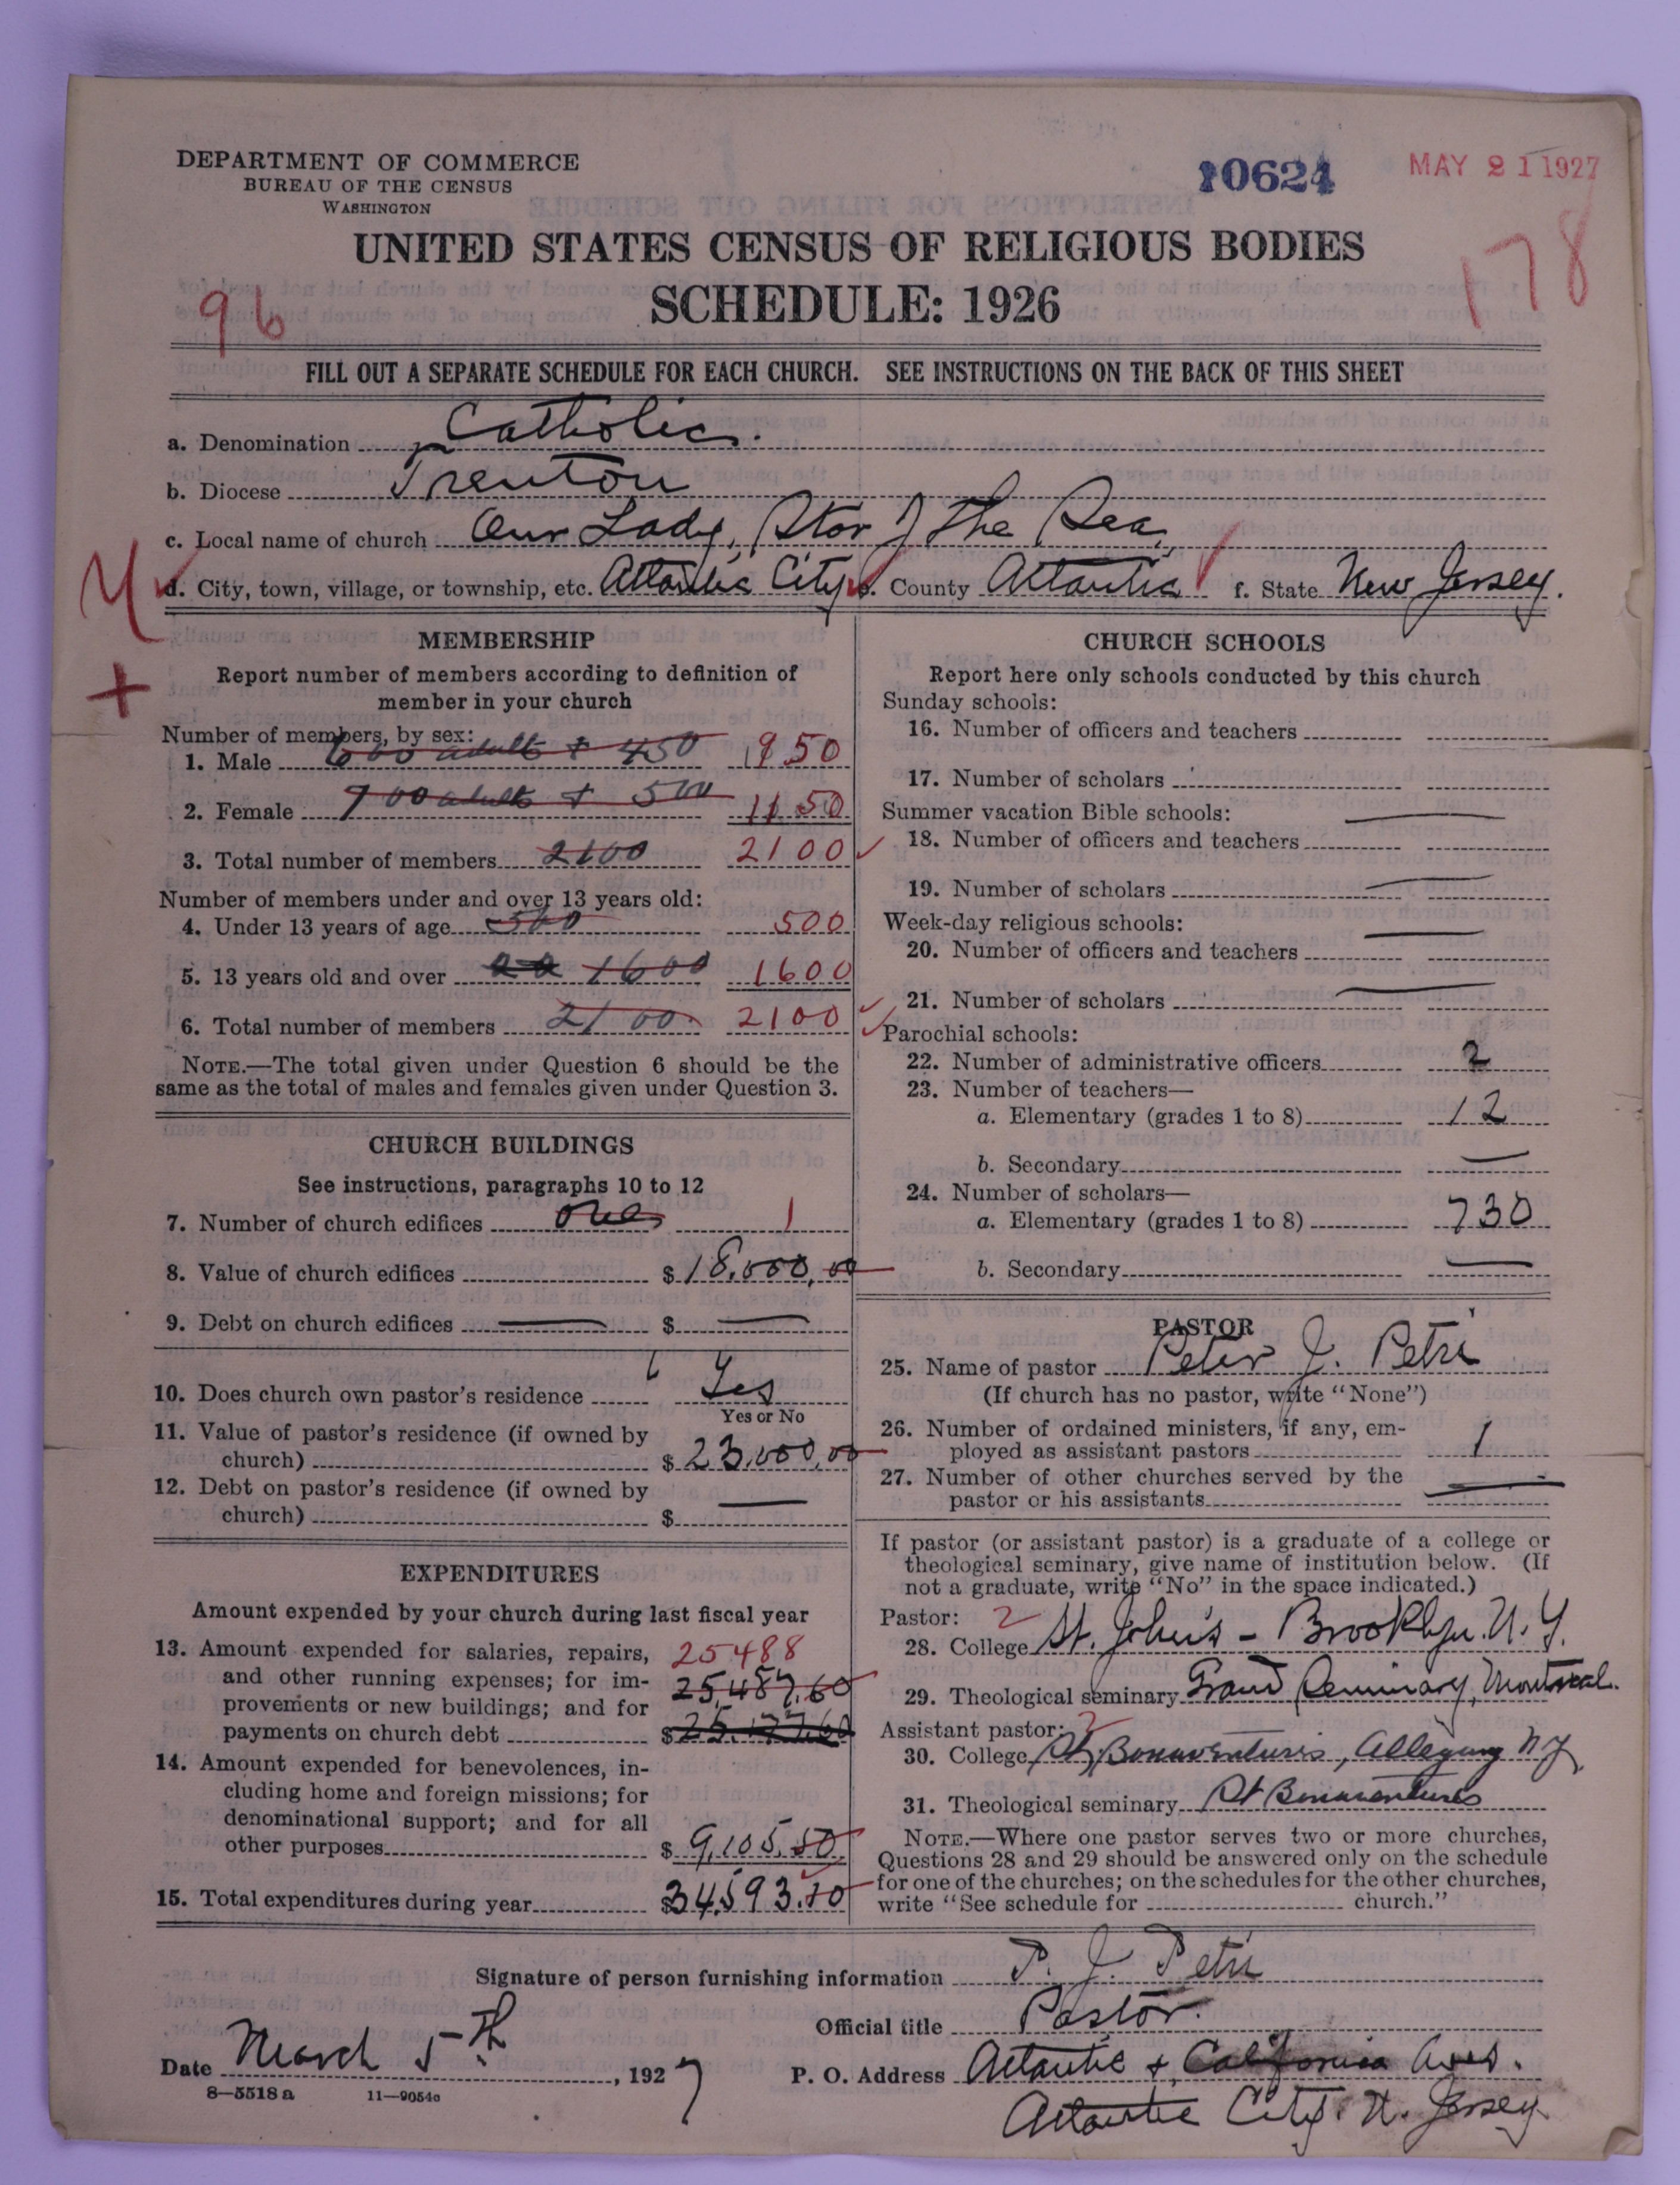 DEPARTMENT OF COMMERCE
BUREAU OF THE CENSUS
WASHINGTON
10624
MAY 21 1927
UNITED STATES CENSUS OF RELIGIOUS BODIES
SCHEDULE: 1926
96
178
FILL OUT A SEPARATE SCHEDULE FOR EACH CHURCH. SEE INSTRUCTIONS ON THE BACK OF THIS SHEET
a. Denomination Catholic.
b. Diocese Trenton
c. Local name of church Our Lady, Star of the Sea,
d. City, town, village, or township, etc. Atlantic City e. County Atlantic f. State New Jersey.
MEMBERSHIP
Report number of members according to definition of
member in your church
Number of members, by sex:
1. Male 600 adults + 450 950
2. Female 700 adults + 500 1150
3. Total number of members 2100 2100
Number of members under and over 13 years old:
4. Under 13 years of age 500 500
5. 13 years old and over 1600 1600
6. Total number of members 2100 2100
NOTE.—The total given under Question 6 should be the
same as the total of males and females given under Question 3.
CHURCH BUILDINGS
See instructions, paragraphs 10 to 12
7. Number of church edifices one 1
8. Value of church edifices $18,000,00
9. Debt on church edifices — $ —
10. Does church own pastor's residence Yes
Yes or No
11. Value of pastor's residence (if owned by
church) $23,000,00
12. Debt on pastor's residence (if owned by
church) $ —
EXPENDITURES
Amount expended by your church during last fiscal year
13. Amount expended for salaries, repairs, 25488
and other running expenses; for im- 25,487,60
provements or new buildings; and for
payments on church debt $
14. Amount expended for benevolences, in-
cluding home and foreign missions; for
denominational support; and for all
other purposes $ 9,105.50
15. Total expenditures during year $34,593.10
CHURCH SCHOOLS
Report here only schools conducted by this church
Sunday schools:
16. Number of officers and teachers
17. Number of scholars
Summer vacation Bible schools: —
18. Number of officers and teachers
19. Number of scholars —
Week-day religious schools: —
20. Number of officers and teachers
21. Number of scholars —
Parochial schools:
22. Number of administrative officers 2
23. Number of teachers—
a. Elementary (grades 1 to 8) 12
b. Secondary —
24. Number of scholars—
a. Elementary (grades 1 to 8) 730
b. Secondary —
PASTOR
25. Name of pastor Peter J. Petri
(If church has no pastor, write "None")
26. Number of ordained ministers, if any, em-
ployed as assistant pastors 1
27. Number of other churches served by the
pastor or his assistants —
If pastor (or assistant pastor) is a graduate of a college or
theological seminary, give name of institution below. (If
not a graduate, write "No" in the space indicated.)
Pastor: 2
28. College St. John's - Brooklyn. N.Y.
29. Theological seminary Grand Seminary, Montreal.
Assistant pastor: 2
30. College St Bonaventures, Allegany NY
31. Theological seminary St Bonaventures
NOTE.—Where one pastor serves two or more churches,
Questions 28 and 29 should be answered only on the schedule
for one of the churches; on the schedules for the other churches,
write "See schedule for church."
Signature of person furnishing information P. J. Petri
Official title Pastor.
Date March 5th, 1927
P. O. Address Atlantic & California Aves.
Atlantic City. N. Jersey
8—5518 a 11—9054a